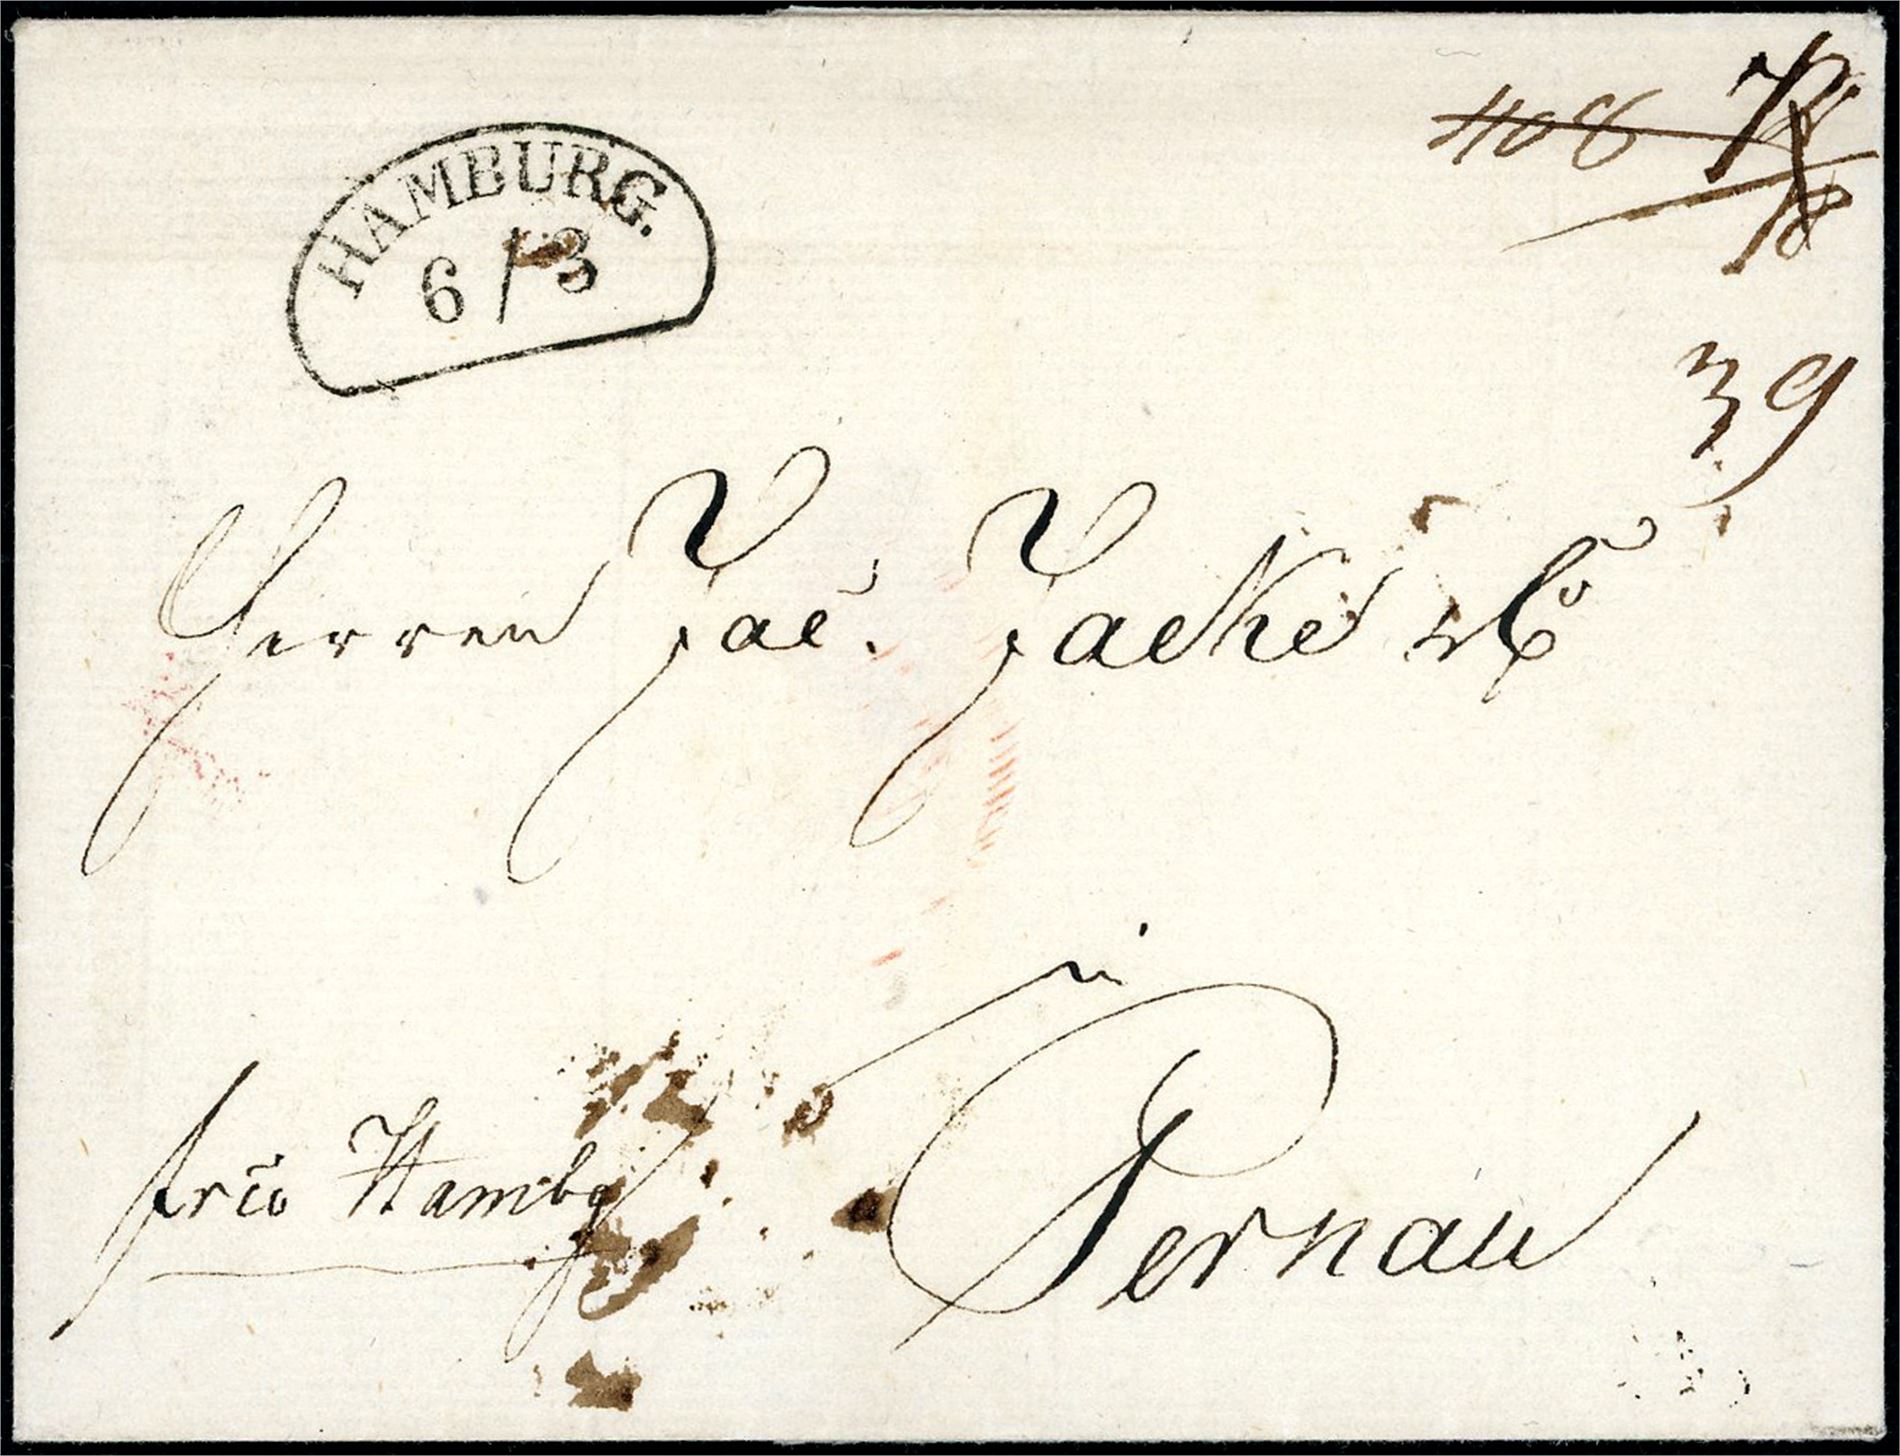 HAMBURG.
6 / 3
39
Herren Jac. Jacke & Co
in
Pernau
frco Hambg